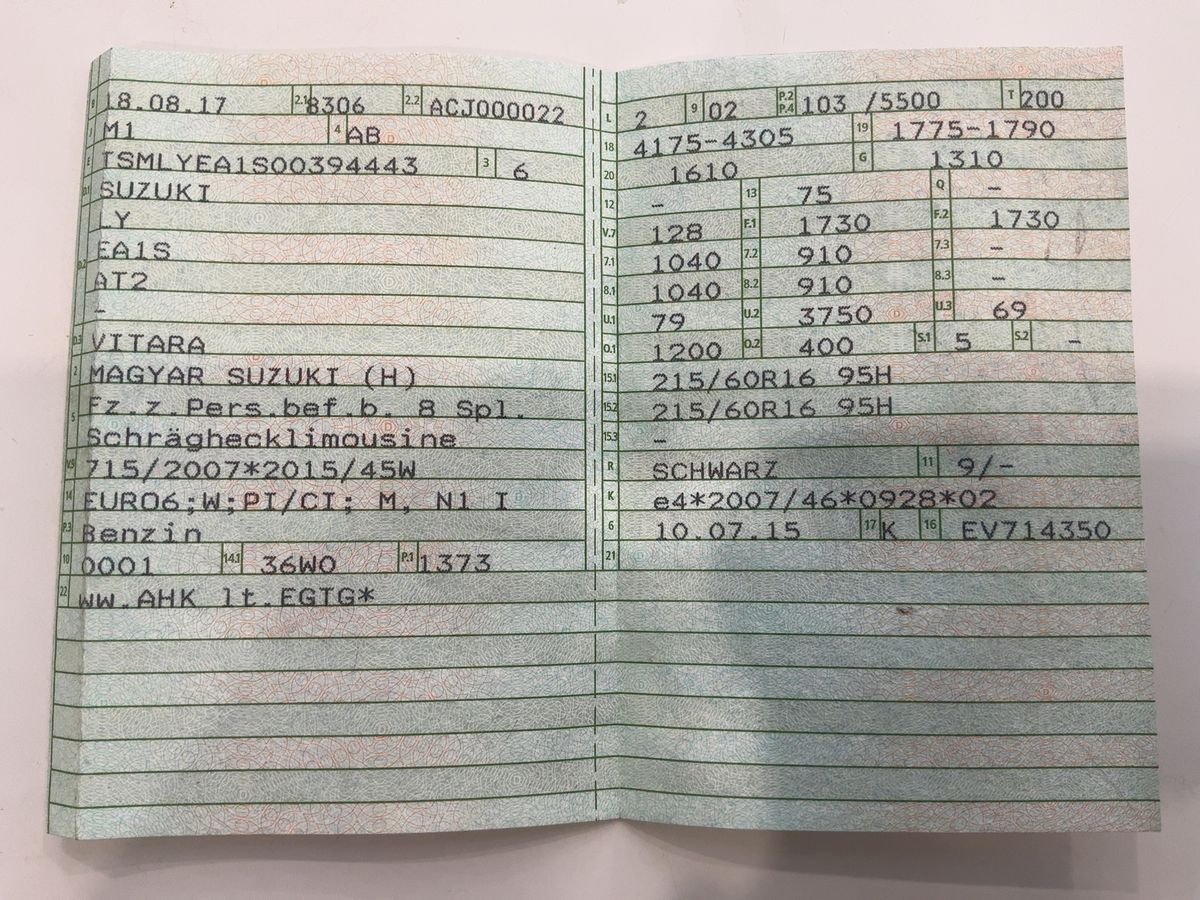 B 18.08.17 2.1 8306 2.2 ACJ000022
J M1 4 AB
E TSMLYEA1S00394443 3 6
D.1 SUZUKI
LY
D.2 EA1S
AT2
-
D.3 VITARA
2 MAGYAR SUZUKI (H)
5 Fz.z.Pers.bef.b. 8 Spl.
Schräghecklimousine
V.9 715/2007*2015/45W
14 EURO6;W;PI/CI; M, N1 I
P.3 Benzin
10 0001 14.1 36W0 P.1 1373
22 ww.AHK lt.EGTG*
L 2 9 02 P.2 P.4 103 /5500 T 200
18 4175-4305 19 1775-1790
20 1610 G 1310
12 - 13 75 Q -
V.7 128 F.1 1730 F.2 1730
7.1 1040 7.2 910 7.3 -
8.1 1040 8.2 910 8.3 -
U.1 79 U.2 3750 U.3 69
O.1 1200 O.2 400 S.1 5 S.2 -
15.1 215/60R16 95H
15.2 215/60R16 95H
15.3 -
R SCHWARZ 11 9/-
K e4*2007/46*0928*02
6 10.07.15 17 K 16 EV714350
21